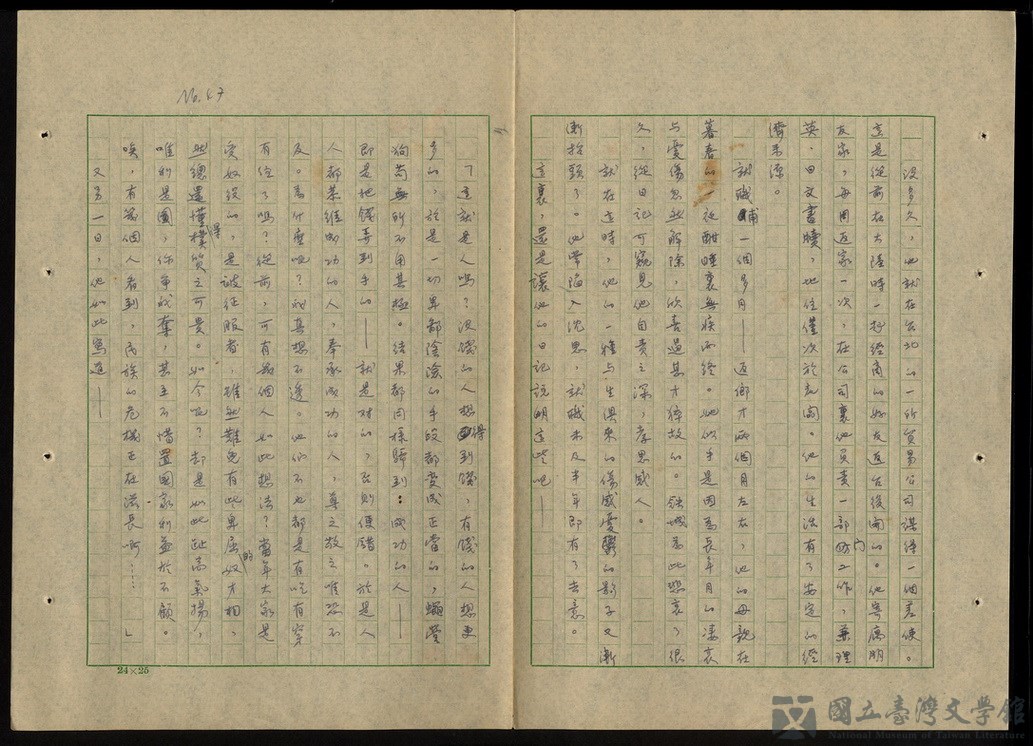 No. 47
沒多久，他就在台北的一所貿易公司謀得一個差使。
這是從前在大陸時一抄經商的好友返台後開的。他寄寓朋
友家，每周返家一次，在公司裏他負責一部門工作，兼理
英、日文書牘，地位僅次於老闆。他的生活有了安定的經
濟來源。
就職甫一個多月——返鄉才兩個月左右，他的母親在
暮春的一夜酣睡裏無疾而終。她似乎是因為長年月的淒哀
與憂傷忽然解除，欣喜過甚才猝故的。鉄城為此悲哀了很
久，從日記可窺見他自責之深，孝思感人。
就在這時，他的一種與生俱來的傷感憂鬱的影子又漸
漸抬頭了。他常陷入沈思，就職未及半年即有了去意。
這裏，還是讓他的日記說明這些吧——
「這就是人嗎？沒錢的人想得到錢，有錢的人想更
多的，於是一切卑鄙陰險的手段都變成正當的，蠅營
狗苟無所不用其極。結果都同樣歸到：成功的人——
即是把錢弄到手的——就是對的，否則便錯。於是人
人都羨維成功的人，奉承成功的人，尊之敬之唯恐不
及。為什麼呢？我真想不透。他們不也都是有吃有穿
有住了嗎？從前，可有幾個人如此想法？當年大家是
受奴役的，是被征服者，雖然難免有些卑屈的奴才相，
然總是還懂樸質之可貴。如今呢？却是如此趾高氣揚，
唯利是圖，你爭我奪，甚至不惜置國家利益於不顧。
唉，有幾個人看到，民族的危機正在滋長啊……」
又另一日，他如此寫道——
24×25
國立臺灣文學館
National Museum of Taiwan Literature